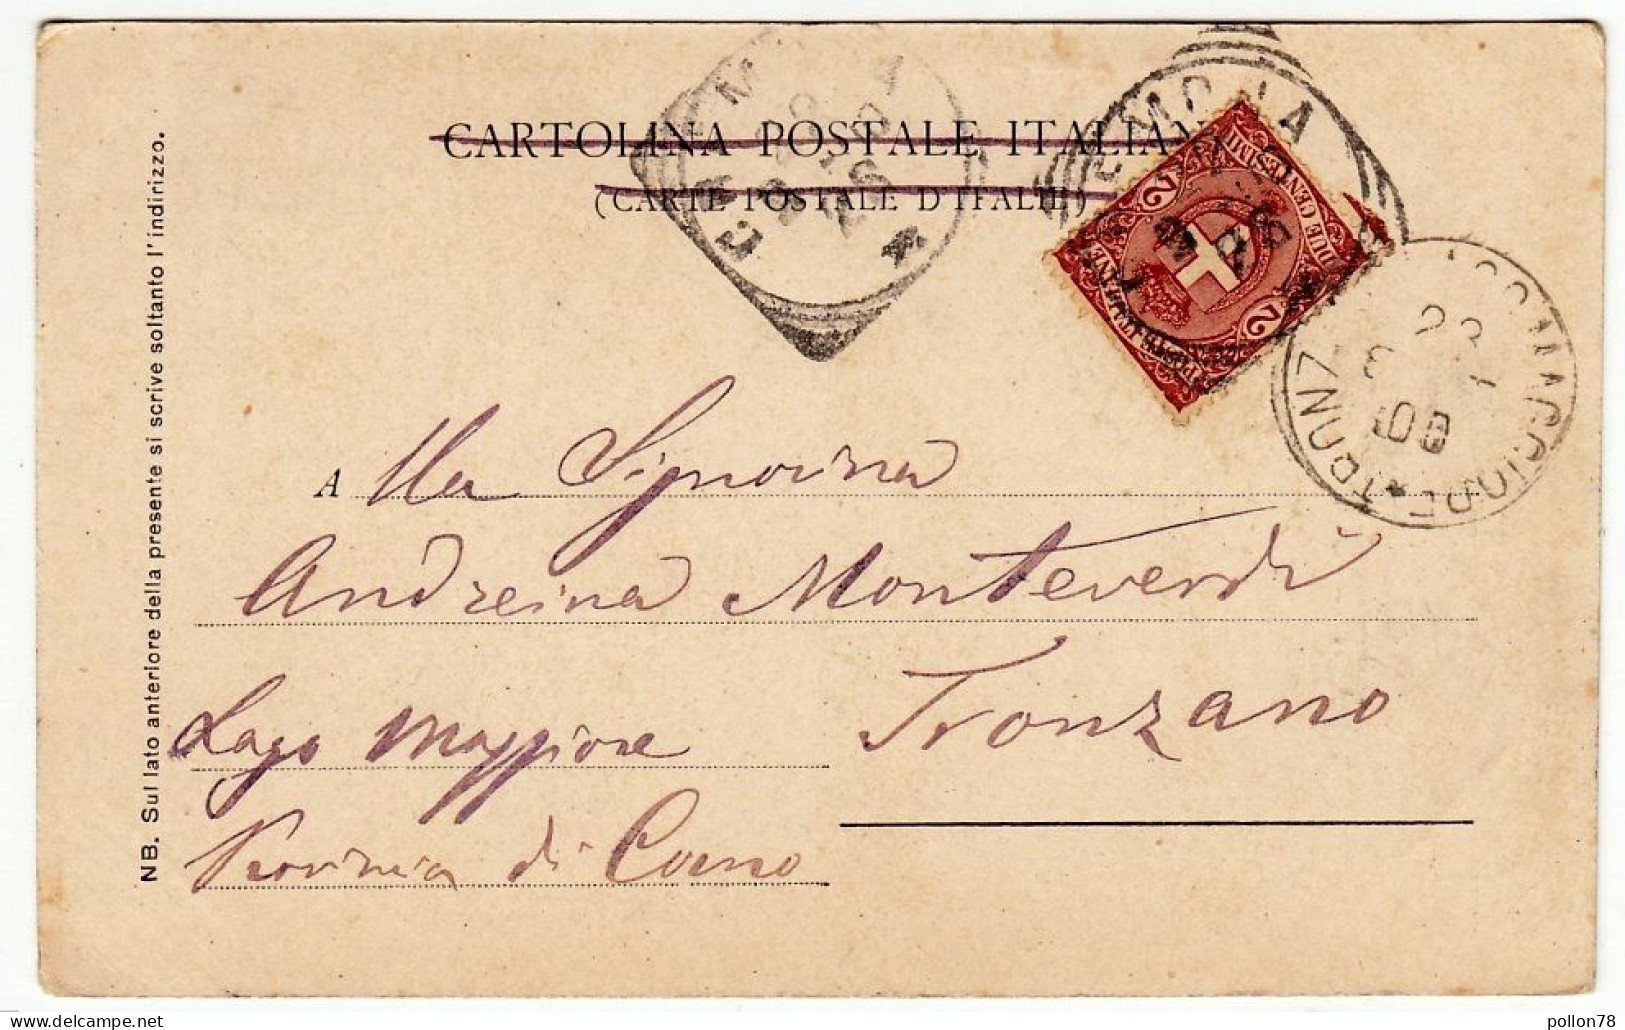 CARTOLINA POSTALE ITALIANA
(CARTE POSTALE D'ITALIE)
NB. Sul lato anteriore della presente si scrive soltanto l'indirizzo.
DUE CENTESIMI
2
2
POSTE ITALIANE
TRONZ
LAGO MAGGIORE
A lla Signorina
Andreina Monteverdi
Tronzano
Lago Maggiore
Provincia di Como
pollon78